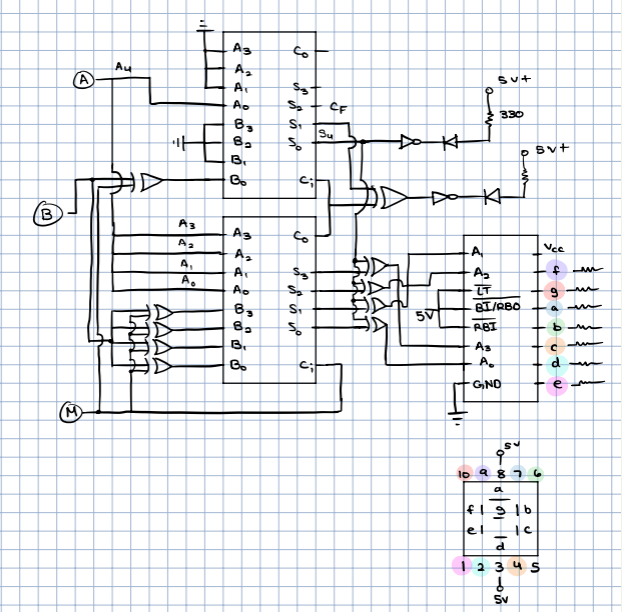 A
A4
B
M
A3
A2
A1
A0
B3
B2
B1
B0
C0
S3
S2
S1
S0
Ci
CF
S4
5V+
330
5V+
A3
A2
A1
A0
A3
A2
A1
A0
B3
B2
B1
B0
C0
S3
S2
S1
S0
Ci
5V
A1
A2
LT
BI/RBO
RBI
A3
A0
GND
Vcc
f
g
a
b
c
d
e
5V
10 9 8 7 6
a
f g b
e c
d
1 2 3 4 5
5V